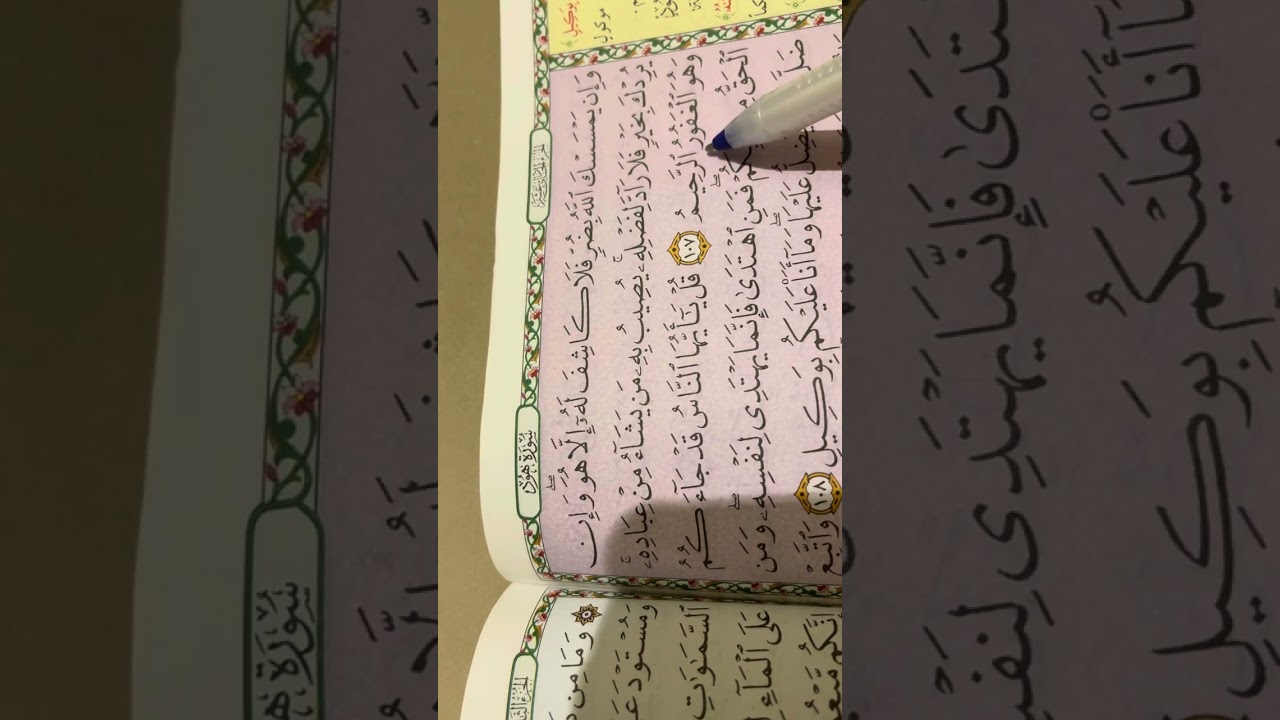 سُورَةُ هُودٍ
وَإِن يَمْسَسْكَ ٱللَّهُ بِضُرٍّ فَلَا كَاشِفَ لَهُۥٓ إِلَّا هُوَ ۖ وَإِن
يُرِدْكَ بِخَيْرٍ فَلَا رَآدَّ لِفَضْلِهِۦ ۚ يُصِيبُ بِهِۦ مَن يَشَآءُ مِنْ عِبَادِهِۦ ۚ
وَهُوَ ٱلْغَفُورُ ٱلرَّحِيمُ ١٠٧ قُلْ يَـٰٓأَيُّهَا ٱلنَّاسُ قَدْ جَآءَكُمُ
ٱلْحَقُّ مِن كُمْ ۖ فَمَنِ ٱهْتَدَىٰ فَإِنَّمَا يَهْتَدِى لِنَفْسِهِۦ ۖ وَمَن
ضَلَّ يَضِلُّ عَلَيْهَا ۖ وَمَآ أَنَا۠ عَلَيْكُم بِوَكِيلٍ ١٠٨ وَٱتَّبِعْ
بِوَكِيلٍ
موكول
وَمَا مِن
وَمُسْتَوْدَعَ
ٱلسَّمَـٰوَٰتِ
عَلَى ٱلْمَآءِ
إِنَّكُم